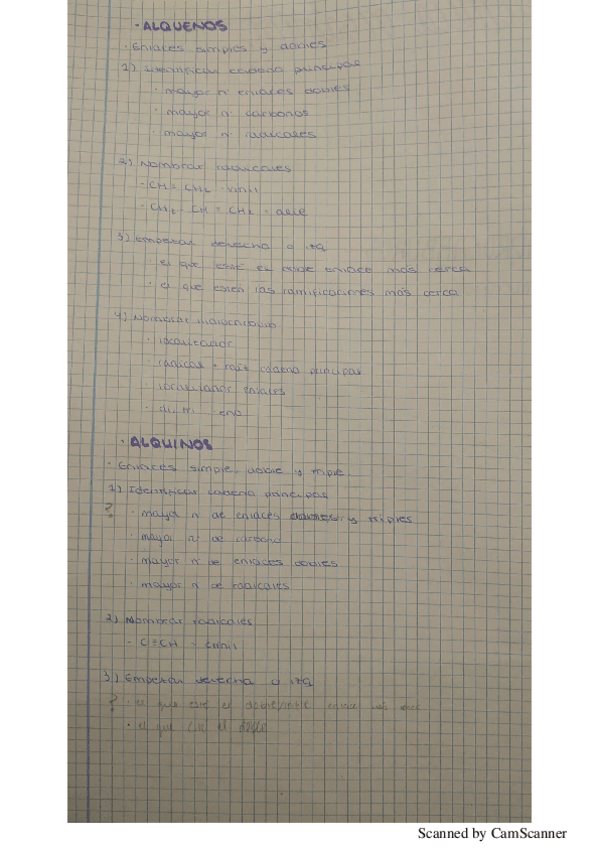 · ALQUENOS
· Enlaces simples y dobles
1) Identificar cadena principal
· mayor nº enlaces dobles
· mayor nº carbonos
· mayor nº radicales
2) Nombrar radicales
- CH = CH2 · vinil
- CH2 - CH = CH2 - alil
3) Empezar derecha o izq
el que esté el doble enlace más cerca
· el que estén las ramificaciones más cerca
4) Nombrar
· localizador
· radical + cadena principal
· localizador enlaces
· di, tri eno
· ALQUINOS
· Enlaces simple, doble y triple
1) Identificar cadena principal
? · mayor nº de enlaces dobles y triples
· mayor nº de carbono
· mayor nº de enlaces dobles
· mayor nº de radicales
2) Nombrar radicales
- C≡CH - etinil
3) Empezar derecha o izq
? · el que esté el doble/triple enlace más cerca
· el que el doble
Scanned by CamScanner